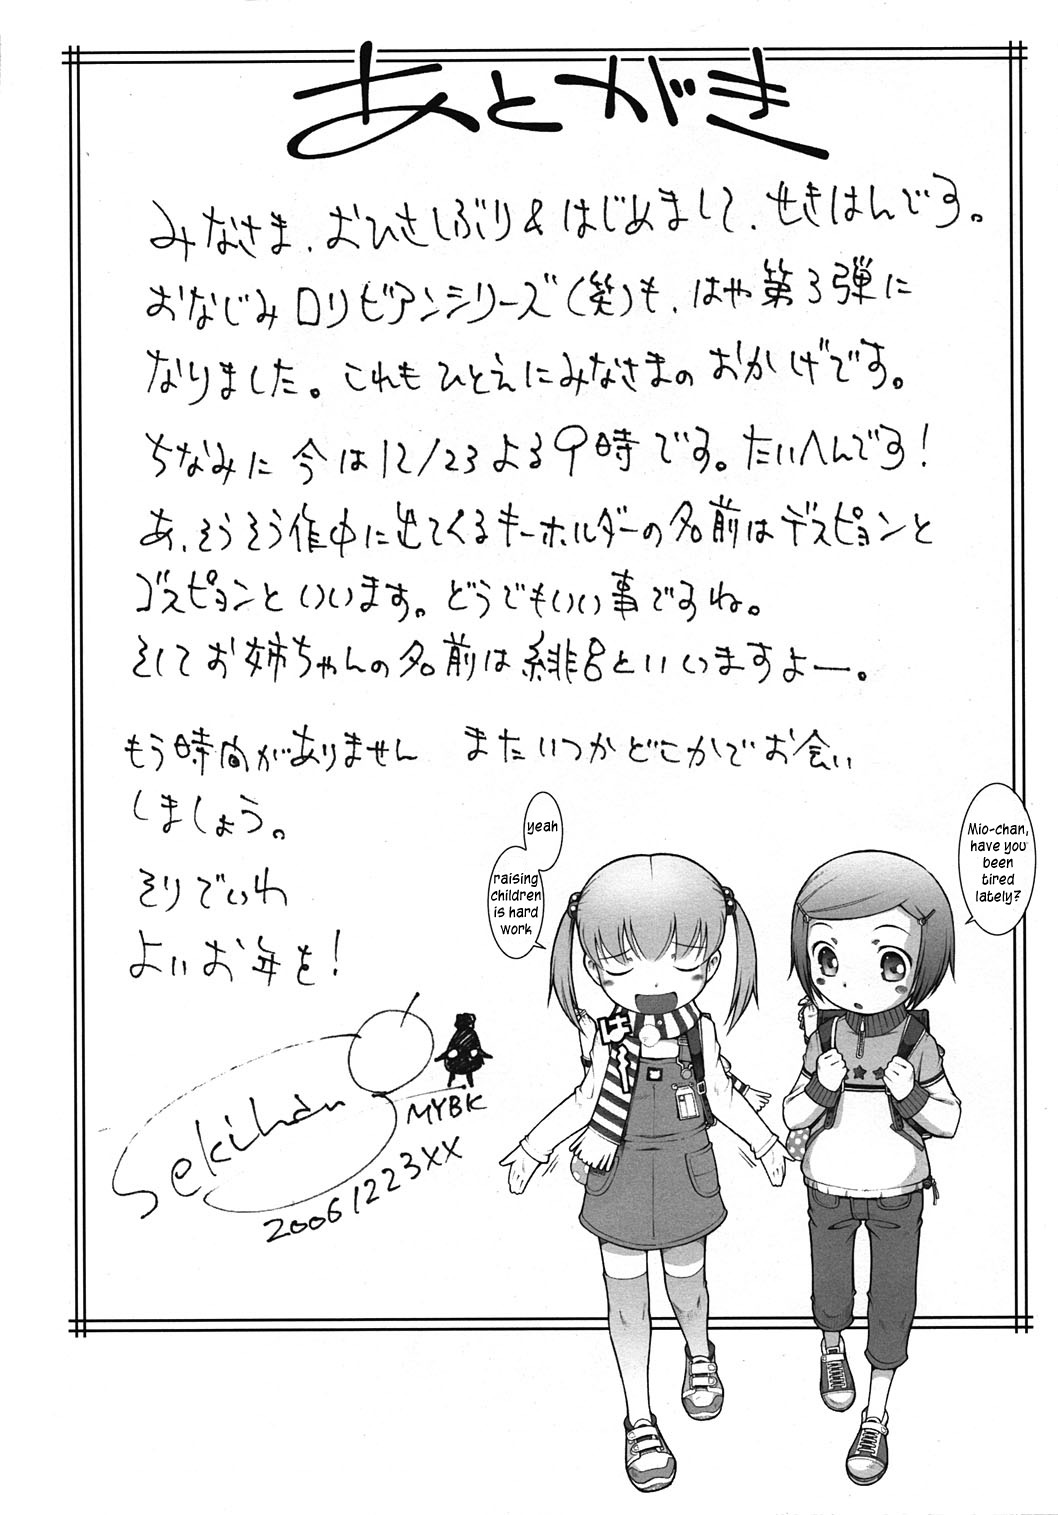 あとがき
みなさま、おひさしぶり&はじめまして、せきはんです。
おなじみロリビアンシリーズ(笑)も、はや第3弾に
なりました。これもひとえにみなさまのおかげです。
ちなみに今は12/23よる9時です。たいへんです!
あ、そうそう作中に出てくるキーホルダーの名前はデスピョンと
ゴスピョンといいます。どうでもいい事ですね。
そしてお姉ちゃんの名前は緋呂といいますよー。
もう時間がありません またいつかどこかでお会い
しましょう。
そりでいわ
よいお年を!
Mio-chan,
have you
been
tired
lately?
yeah
raising
children
is hard
work
は〜
Sekihan
MYBK
20061223XX